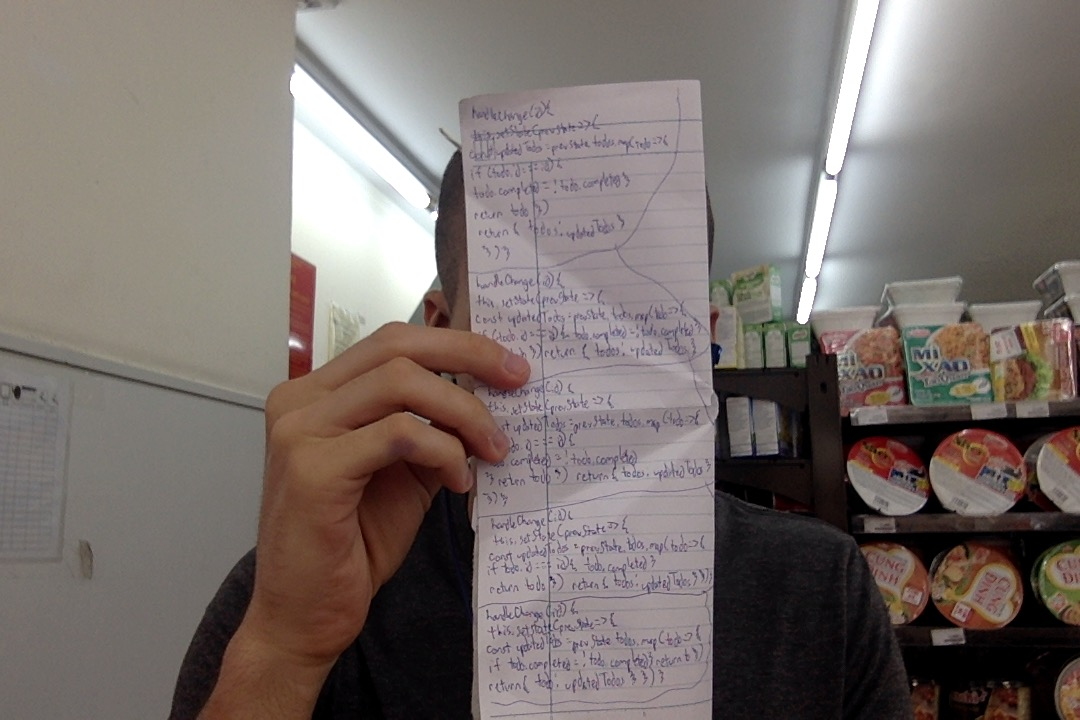 handleChange(id){
this.setState(prevState=>{
const updatedTodos=prevState.todos.map(todo=>{
if (todo.id===id){
todo.completed=!todo.completed}
return todo })
return{ todos:updatedTodos }
})}
handleChange(id){
this.setState(prevState=>{
const updatedTodos=prevState.todos.map(todo=>{
if(todo.id===id){ todo.completed=!todo.completed}
})return{ todos:updatedTodos }
handleChange(id){
this.setState(prevState=>{
updatedTodos=prevState.todos.map(todo=>{
id===id){
completed=!todo.completed
}return todo }) return{ todos:updatedTodos }
})}
handleChange(id){
this.setState(prevState=>{
const updatedTodos=prevState.todos.map(todo=>{
if todo.id===id){ todo.completed}
return todo }) return{ todos:updatedTodos}})}
handleChange(id){
this.setState(prevState=>{
const updatedTodos=prevState.todos.map(todo=>{
if todo.completed=!todo.completed}return t })
return{ todo:updatedTodos } })}
MÌ
XÀO
MÌ
XÀO
CUNG
ĐÌNH
CUNG
ĐÌNH
CUNG